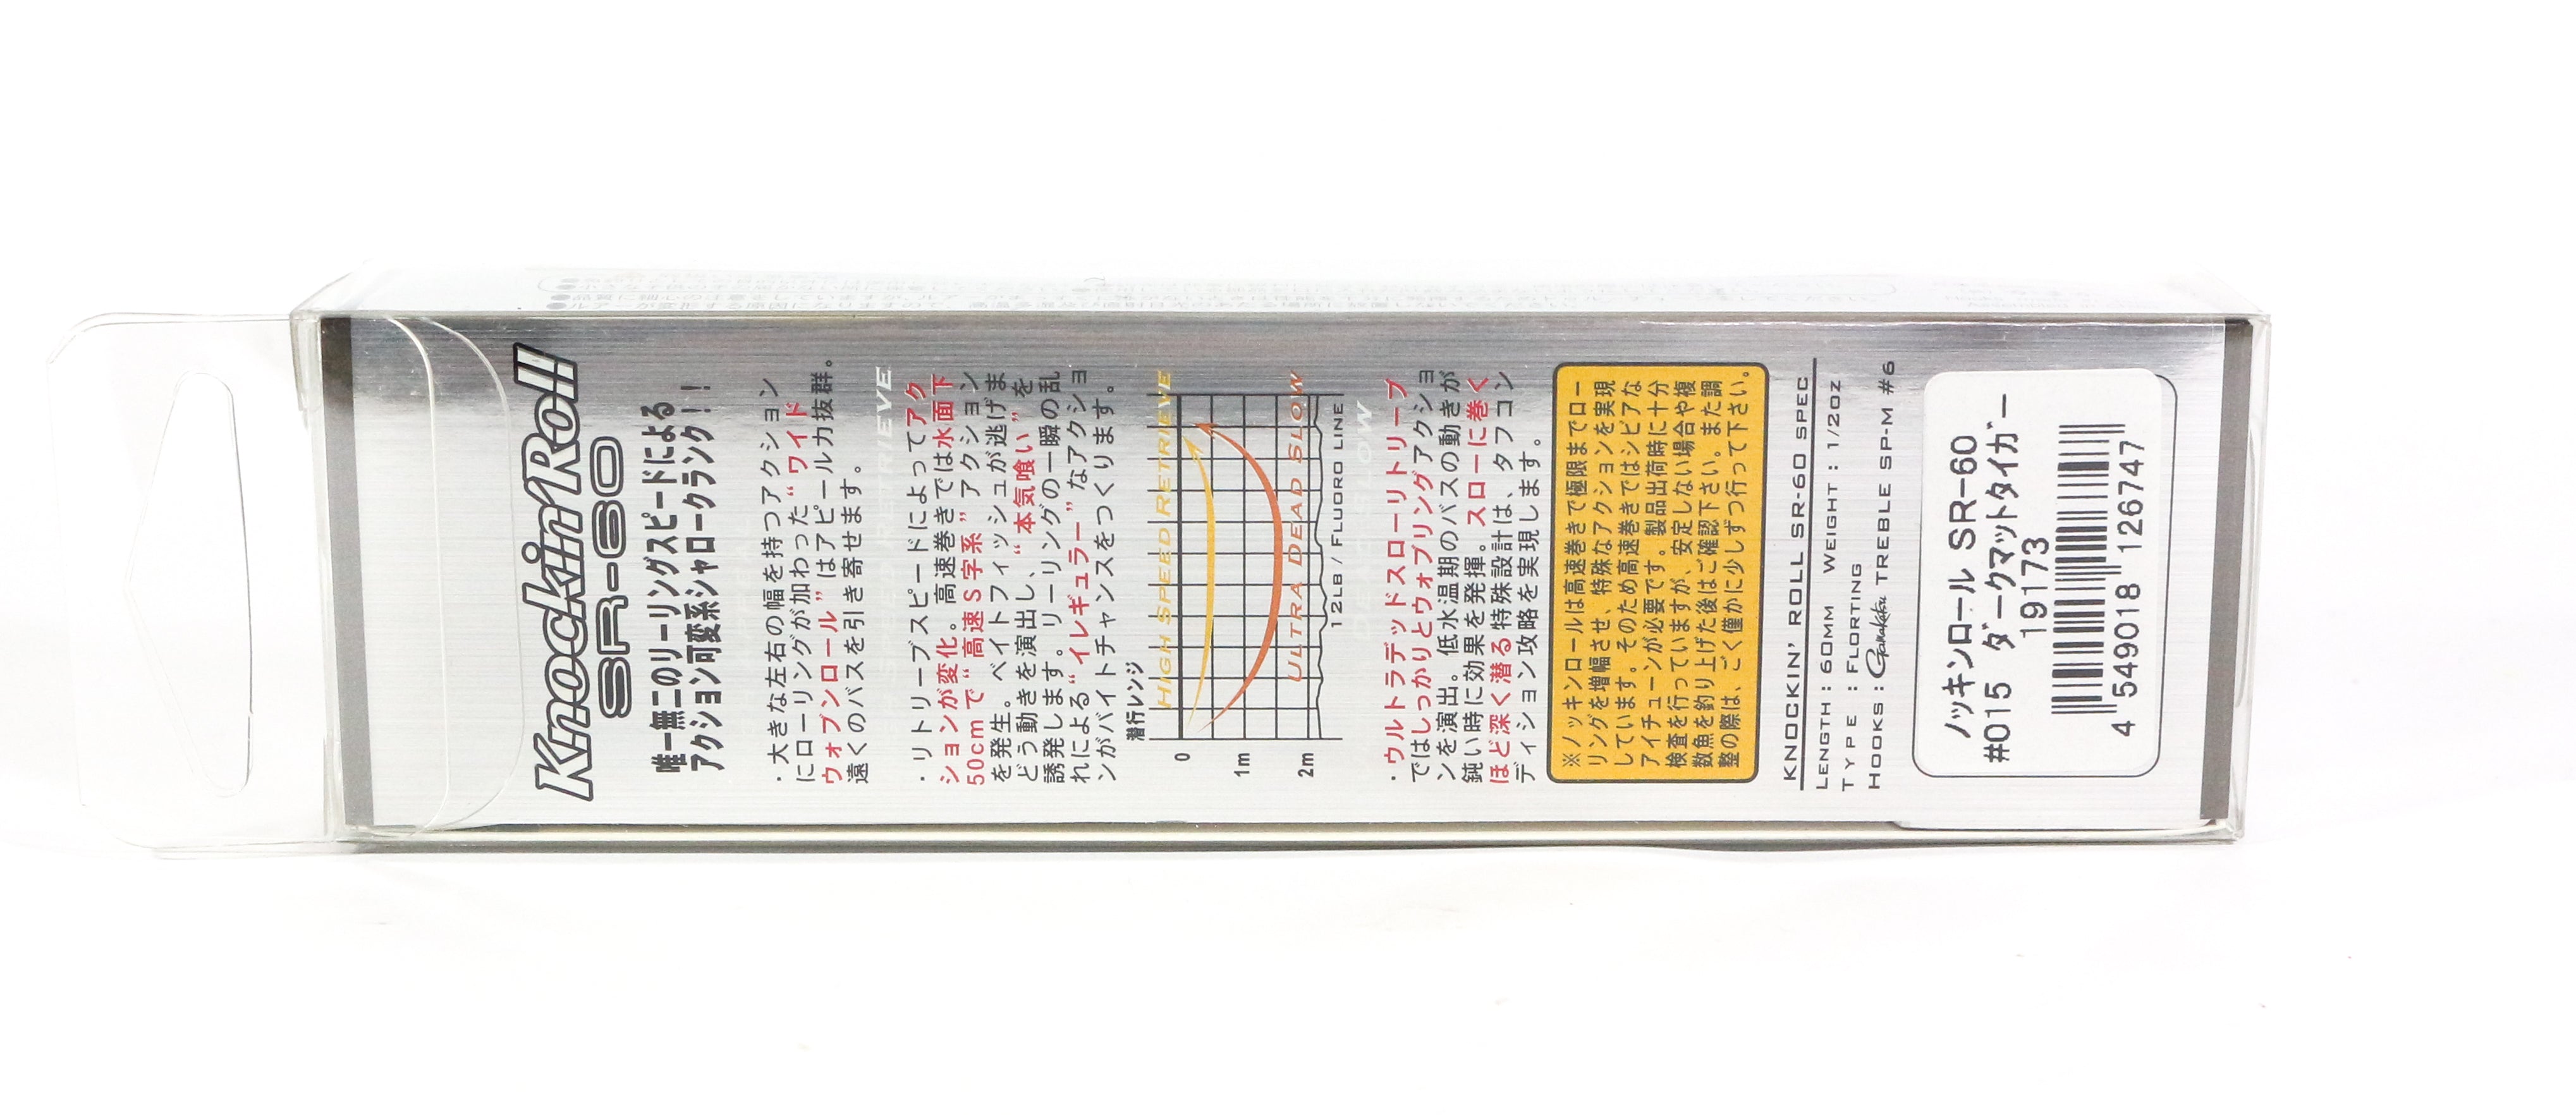 Knockin'Roll
SR-60
唯一無二のリーリングスピードによる
アクション可変系シャロークランク！！
・大きな左右の幅を持つアクション
にローリングが加わった“ワイド
ウォブンロール”はアピール力抜群。
遠くのバスを引き寄せます。
RETRIEVE
・リトリーブスピードによってアク
ションが変化。高速巻きでは水面下
50cmで“高速S字系”アクション
を発生。ベイトフィッシュが逃げま
どう動きを演出し、“本気喰い”を
誘発します。リーリングの一瞬の乱
れによる“イレギュラー”なアクショ
ンがバイトチャンスをつくります。
潜行レンジ
HIGH SPEED RETRIEVE
0
1m
2m
ULTRA DEAD SLOW
12LB / FLUORO LINE
DEAD SLOW
・ウルトラデッドスローリトリーブ
ではしっかりとウォブリングアクショ
ンを演出。低水温期のバスの動きが
鈍い時に効果を発揮。スローに巻く
ほど深く潜る特殊設計は、タフコン
ディション攻略を実現します。
※ノッキンロールは高速巻きで極限までロー
リングを増幅させ、特殊なアクションを実現
しています。そのため高速巻きではシビアな
アイチューンが必要です。製品出荷時に十分
検査を行っていますが、安定しない場合や複
数魚を釣り上げた後はご確認下さい。また調
整の際は、ごく僅かに少しずつ行って下さい。
KNOCKIN' ROLL SR-60 SPEC
LENGTH : 60MM WEIGHT : 1/2OZ
TYPE : FLORTING
HOOKS : Gamakatsu TREBLE SP-M #6
ノッキンロール SR-60
#015 ダークマットタイガー
19173
4 549018 126747